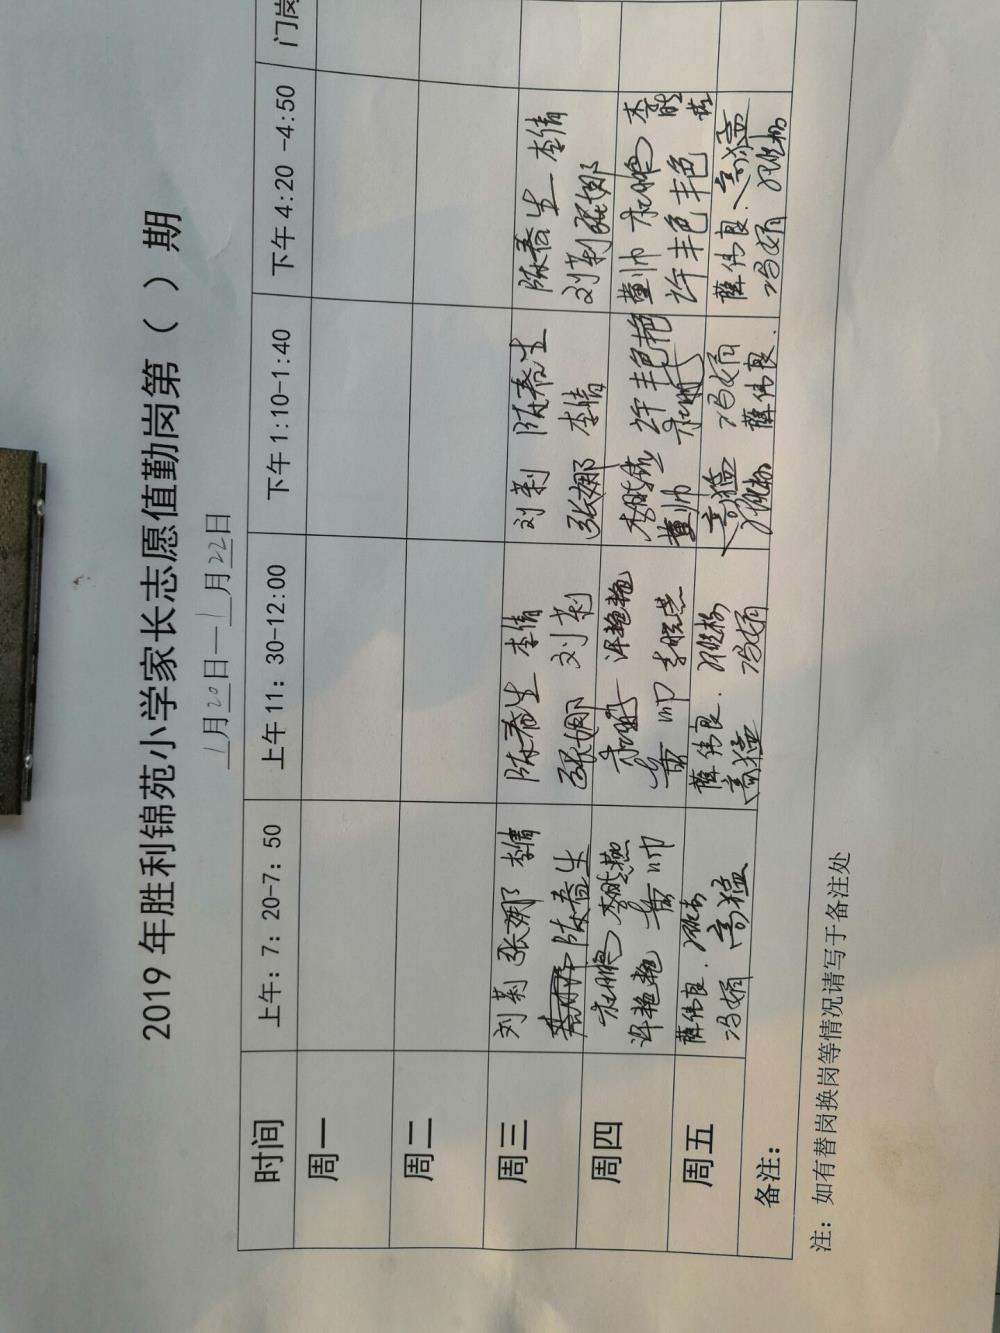 2019年胜利锦苑小学家长志愿值勤岗第（ ）期
1月20日—1月22日
时间 上午：7：20-7：50 上午11：30-12:00 下午1:10-1:40 下午4:20 -4:50 门岗
周一
周二
周三 刘莉 张娜 李倩 陈春生 李倩 刘莉 陈春生 陈春生 李倩
陈春生 张娜 刘莉 张娜 李倩 刘莉 张娜
周四
许艳艳 董帅 董帅 李晓燕 董帅 许丰色 丰色
周五 薛伟良 薛伟良 高猛 冯娟 薛伟良 高猛
冯娟 高猛 高猛 冯娟 薛伟良 冯娟
备注：
注：如有替岗换岗等情况请写于备注处